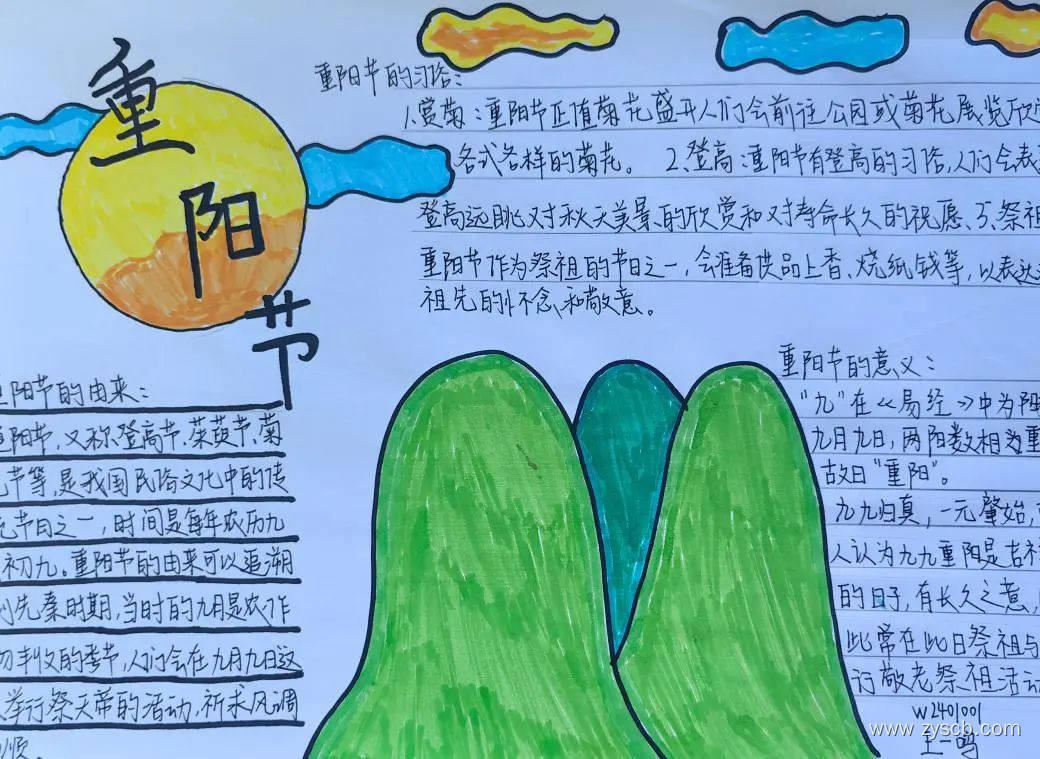 重
阳
节
重阳节的习俗:
1.赏菊:重阳节正值菊花盛开人们会前往公园或菊花展览欣
各式各样的菊花。 2.登高:重阳节有登高的习俗,人们会表
登高远眺对秋天美景的欣赏和对寿命长久的祝愿、3.祭祖
重阳节作为祭祖的节日之一,会准备供品上香、烧纸钱等,以表达
祖先的怀念和敬意。
阳节的由来:
重阳节,又称登高节、茱萸节、菊
节等,是我国民俗文化中的传
节日之一,时间是每年农历九
初九。重阳节的由来可以追溯
到先秦时期,当时的九月是农作
丰收的季节,人们会在九月九日这
举行祭天帝的活动,祈求风调
顺。
重阳节的意义:
"九"在《易经》中为阳
九月九日,两阳数相为重
故曰"重阳"。
九九归真,一元肇始,
人认为九九重阳是吉祥
的日子,有长久之意,
此常在此日祭祖与
行敬老祭祖活动
W2401001
www.zyscb.com
王一鸣